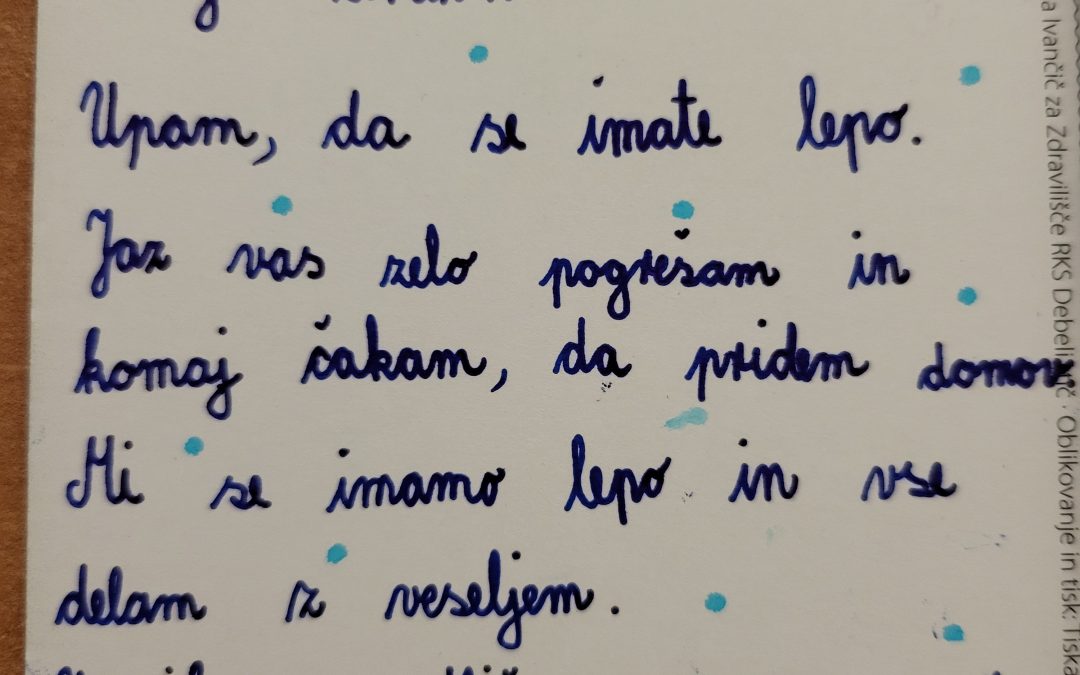 Upam, da se imate lepo.
Jaz vas zelo pogrešam in
komaj čakam, da pridem domov.
Mi se imamo lepo in vse
delam z veseljem.
a Ivančič za Zdravilišče RKS Debeli rtič · Oblikovanje in tisk: Tiska